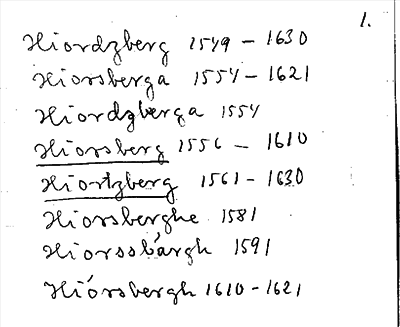 1.
Hiordzberg 1549 - 1630
Hiorsberga 1554 - 1621
Hiordzberga 1554
Hiorsberg 1556 - 1610
Hiortzberg 1561 - 1630
Hiorsberghe 1581
Hiorssbårgh 1591
Hiórsbergh 1610 - 1621